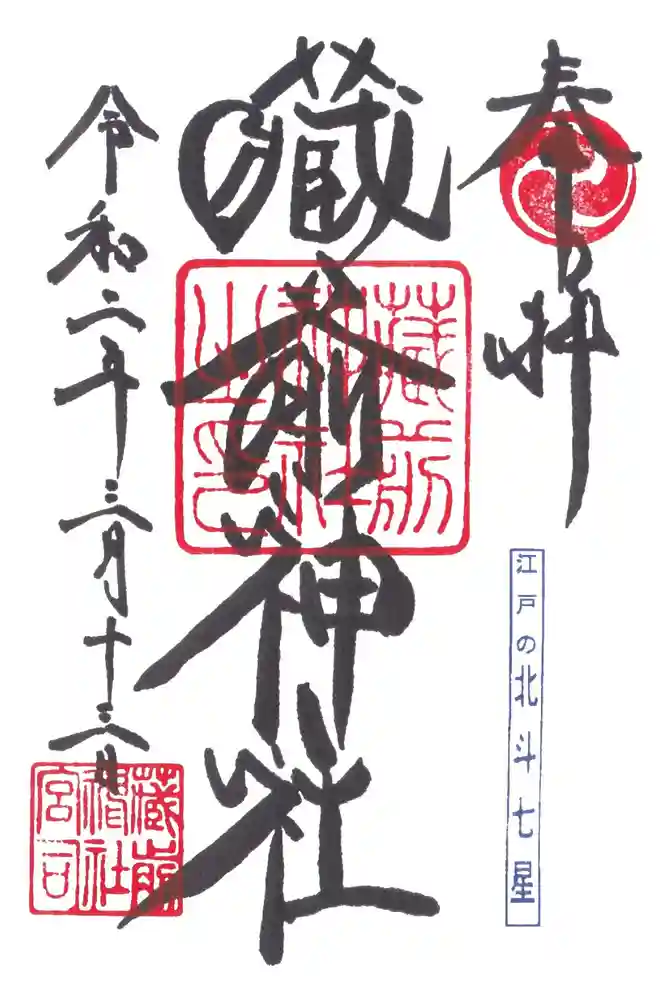 奉拝
江戸の北斗七星
藏前神社
蔵前
神社
之印
令和二年三月十三日
蔵前
神社
宮司